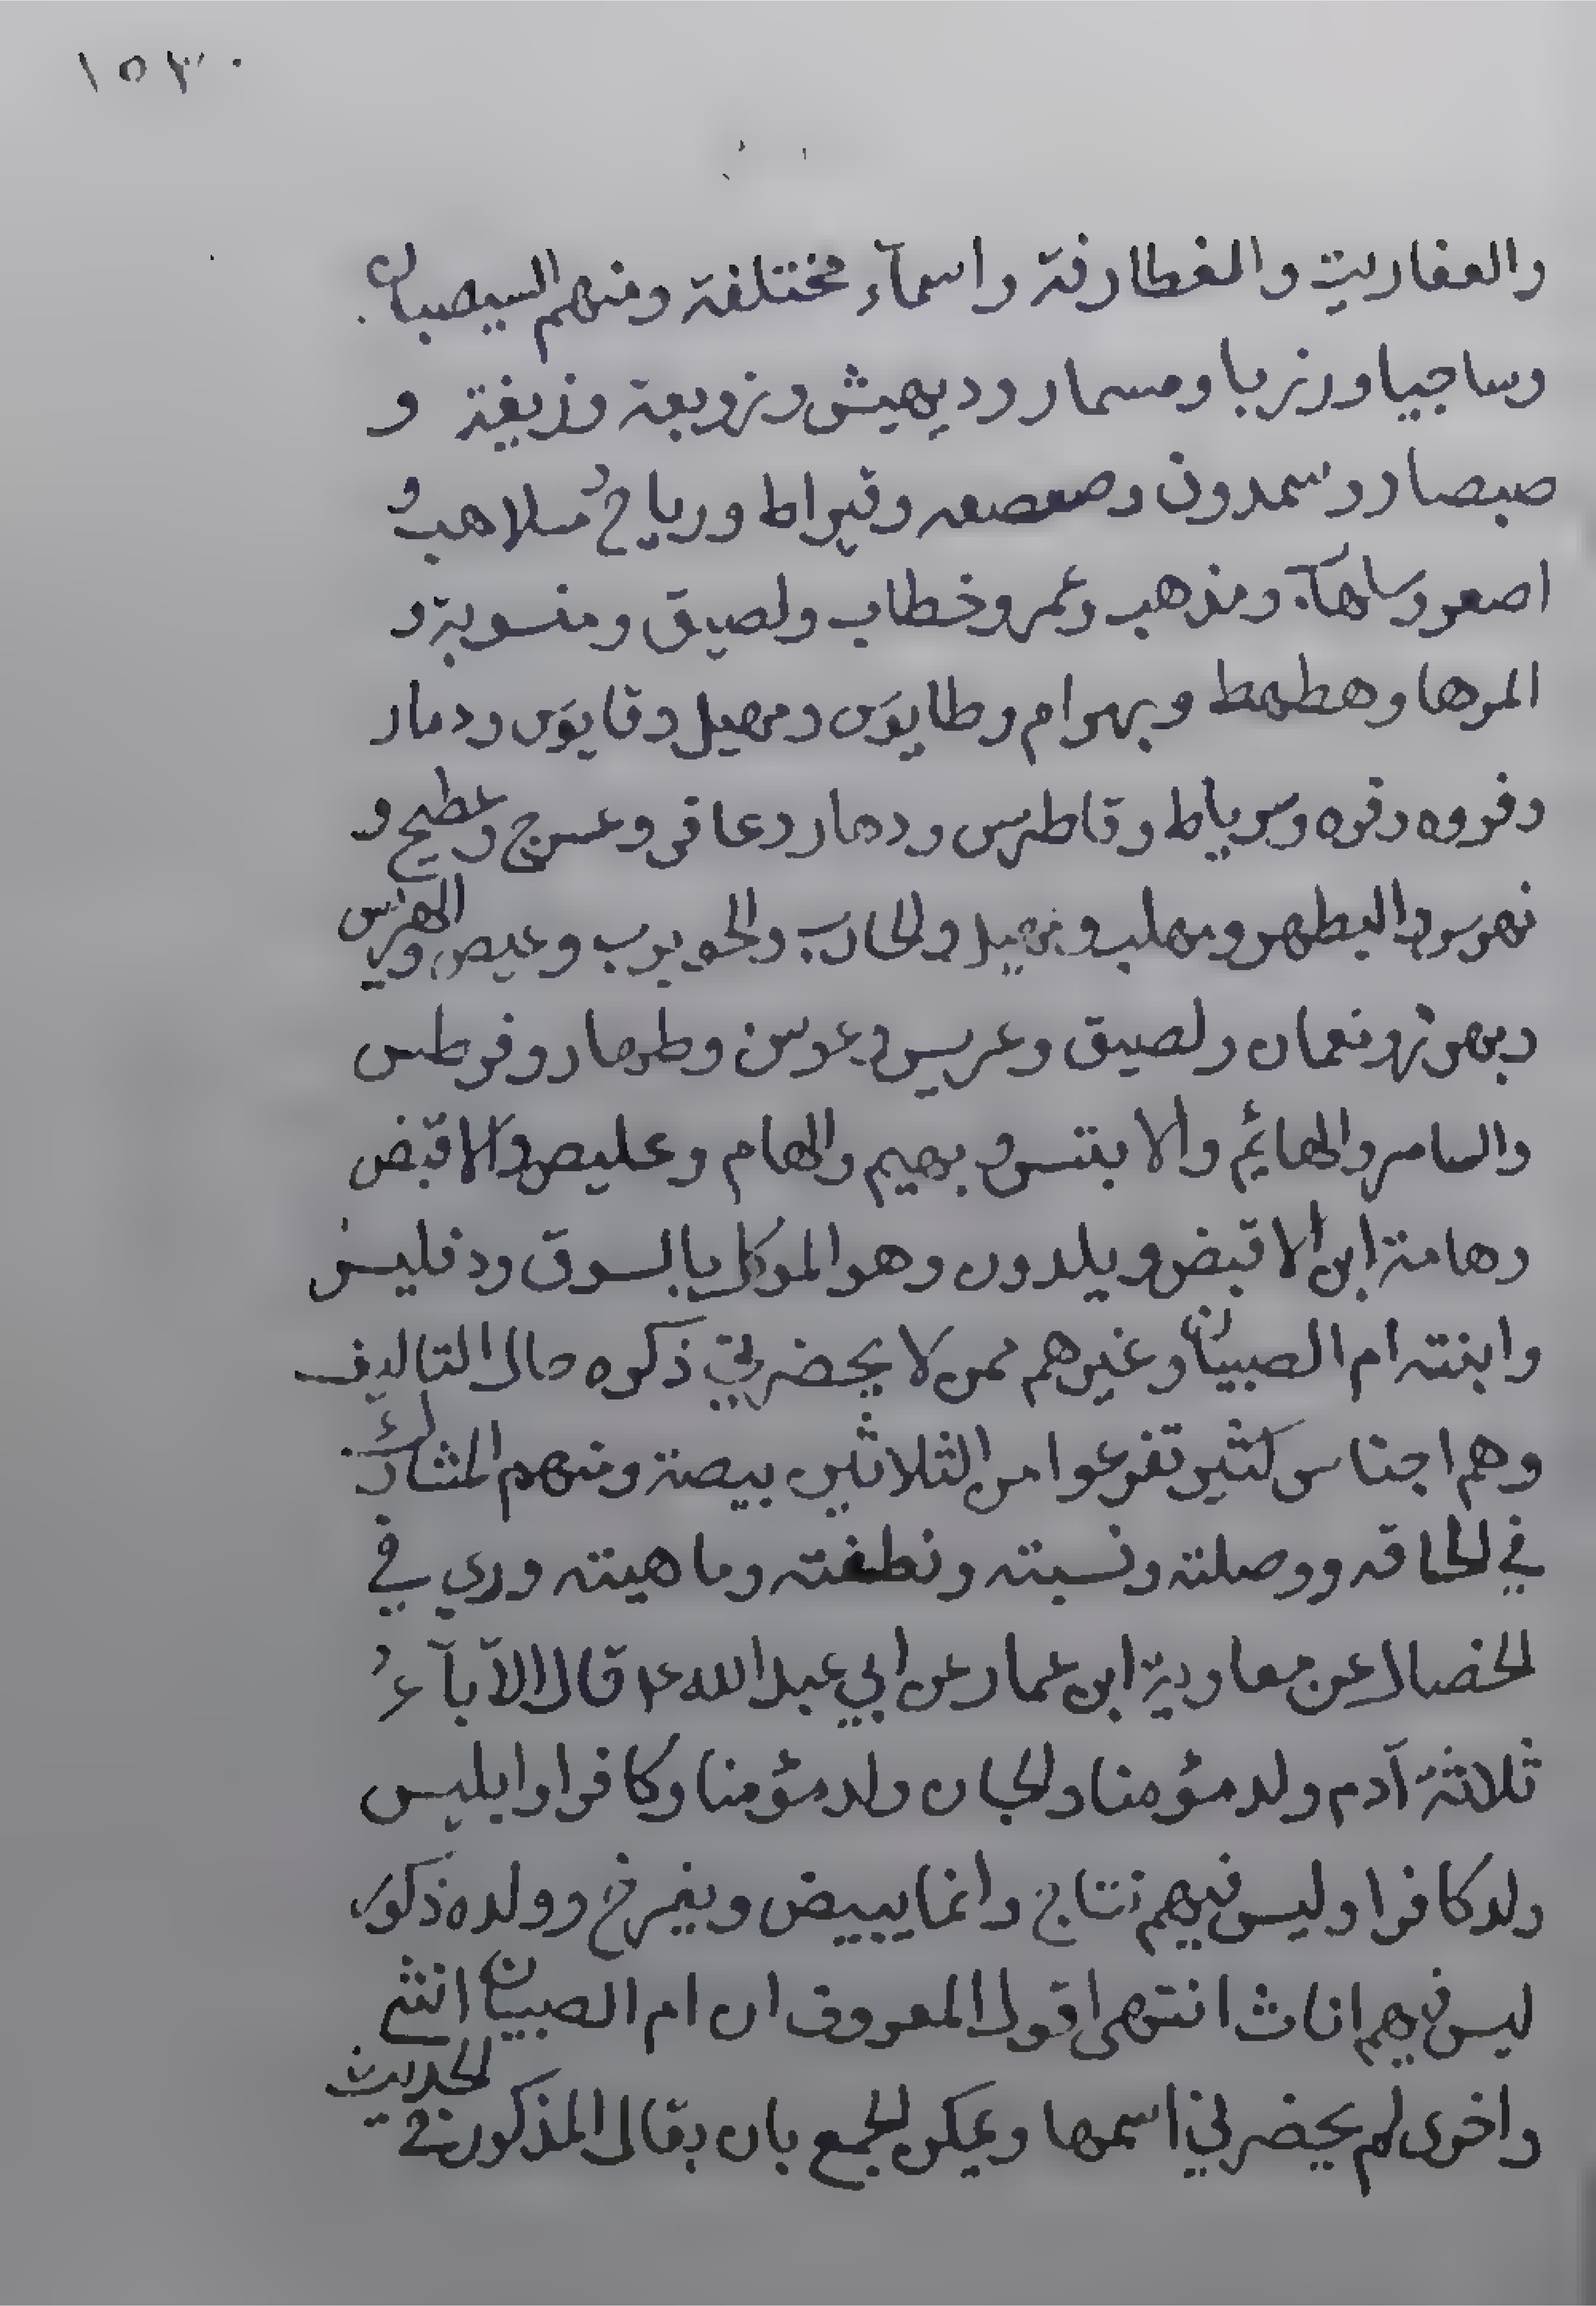 ١٥٣٠
والعفاريت والغطارفة واسمآء مختلفة ومنهم السيصبان
وساجيا وزربا ومسمار وديهيش وزوبعة وزيغة و
صبصار وسمدون وصعصعه وقيراط ورياح وسلاهب و
اصعر وساهكة ومذهب وعمر وخطاب ولصيق ومنسوبة و
المرها وهطهط وبهرام وطايوس ومهيل وقايوس ودمار
وفروه وقوه وسرياط وقاطرس ودهار وعاقر وعسرج وعطيح و
نهرس والبطهر ومهلب ونهيل والحارب والحويرب وعيص والهرس
وبهرز ونعمان ولصيق وعريس وعوس وطرمار وفرطس
والسامر والهايم والابتس وبهيم والهام وعليص والاقبض
وهامة ابن الاقبض ويلدون وهو الموكل بالسوق ودفليس
وابنته ام الصبيان وغيرهم ممن لا يحضرني ذكره حال التاليف
وهم اجناس كثير تفرعوا من الثلاثين بيصة ومنهم المشارك
في الحاقه ووصلته ونسبته ونطفته وماهيته وري في
الخصال عن معاوية ابن عمار عن ابي عبد الله ع قال الآبآء
ثلاثة آدم ولد مؤمنا والجان ولد مؤمنا وكافرا وابليس
ولد كافرا وليس فيهم نتاج وانما يبيض ويفرخ وولده ذكور
ليس فيهم اناث انتهى اقول المعروف ان ام الصبيان انثى
واخرى لم يحضرني اسمها ويمكن الجمع بان يقال المذكور في الحديث